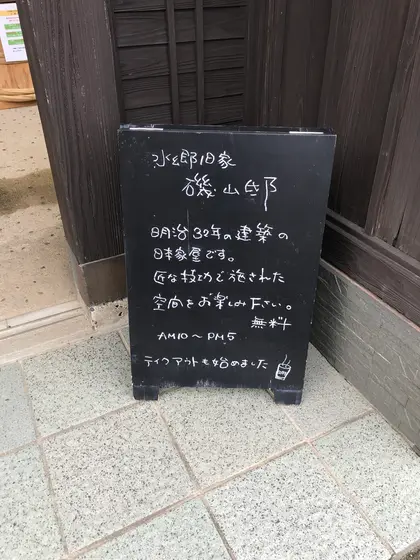 水郷旧家
磯山邸
明治32年の建築の
日本家屋です。
匠な技巧で施された
空間をお楽しみ下さい。
無料
AM10〜PM5
テイクアウトも始めました